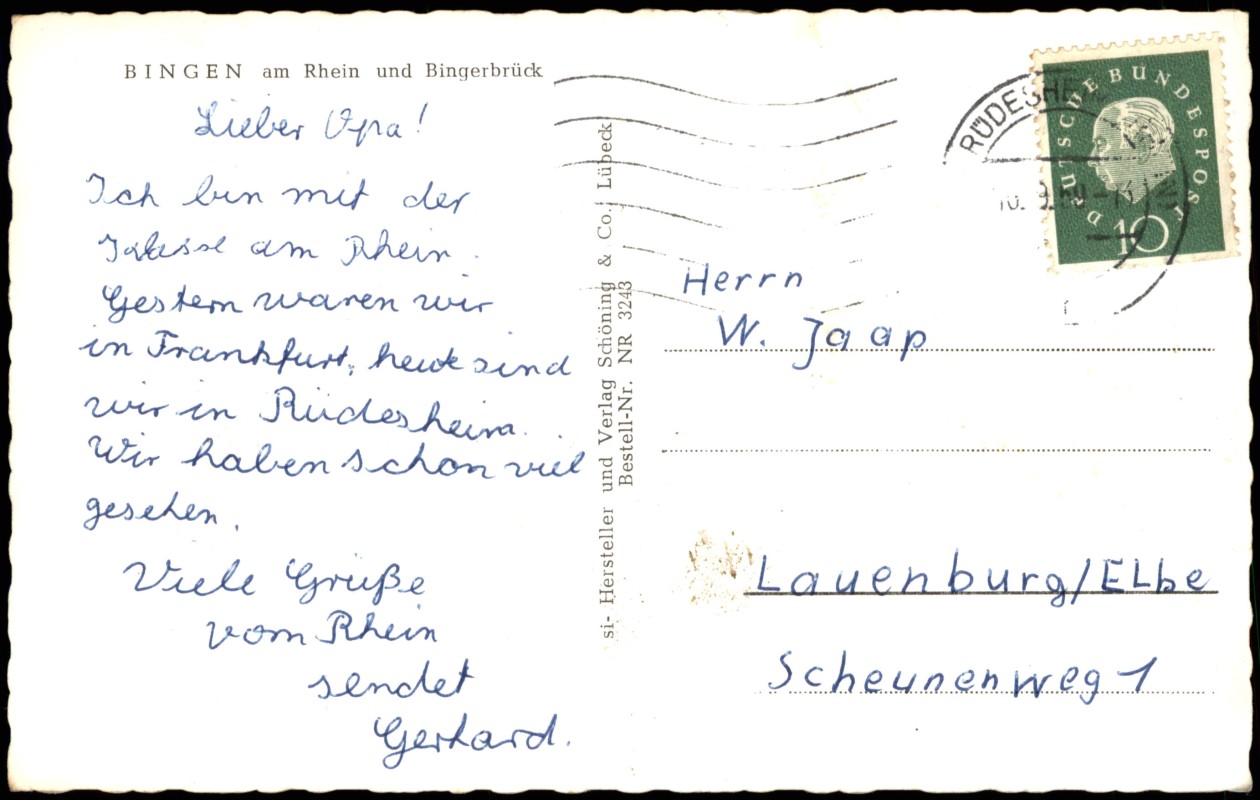 BINGEN am Rhein und Bingerbrück
Lieber Opa!
Ich bin mit der
Klasse am Rhein.
Gestern waren wir
in Frankfurt, heute sind
wir in Rüdesheim.
Wir haben schon viel
gesehen.
Viele Grüße
vom Rhein
sendet
Gerhard.
si- Hersteller und Verlag Schöning & Co., Lübeck
Bestell-Nr. NR 3243
RÜDESHE
DEUTSCHE BUNDESPOST
10
Herrn
W. Jaap
Lauenburg/Elbe
Scheunenweg 1